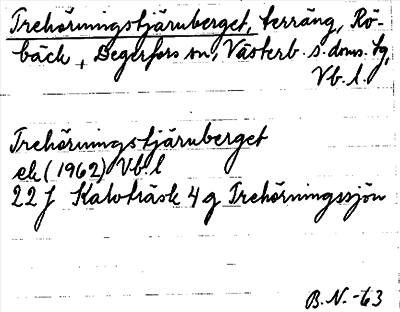 Trehörningstjärnberget, terräng, Rö-
bäck, Degerfors sn, Västerb. s. doms. tg,
Vb. l.
Trehörningstjärnberget
ek (1962) Vb. l
22 J Kalvträsk 4 g Trehörningssjön
B.N.-63